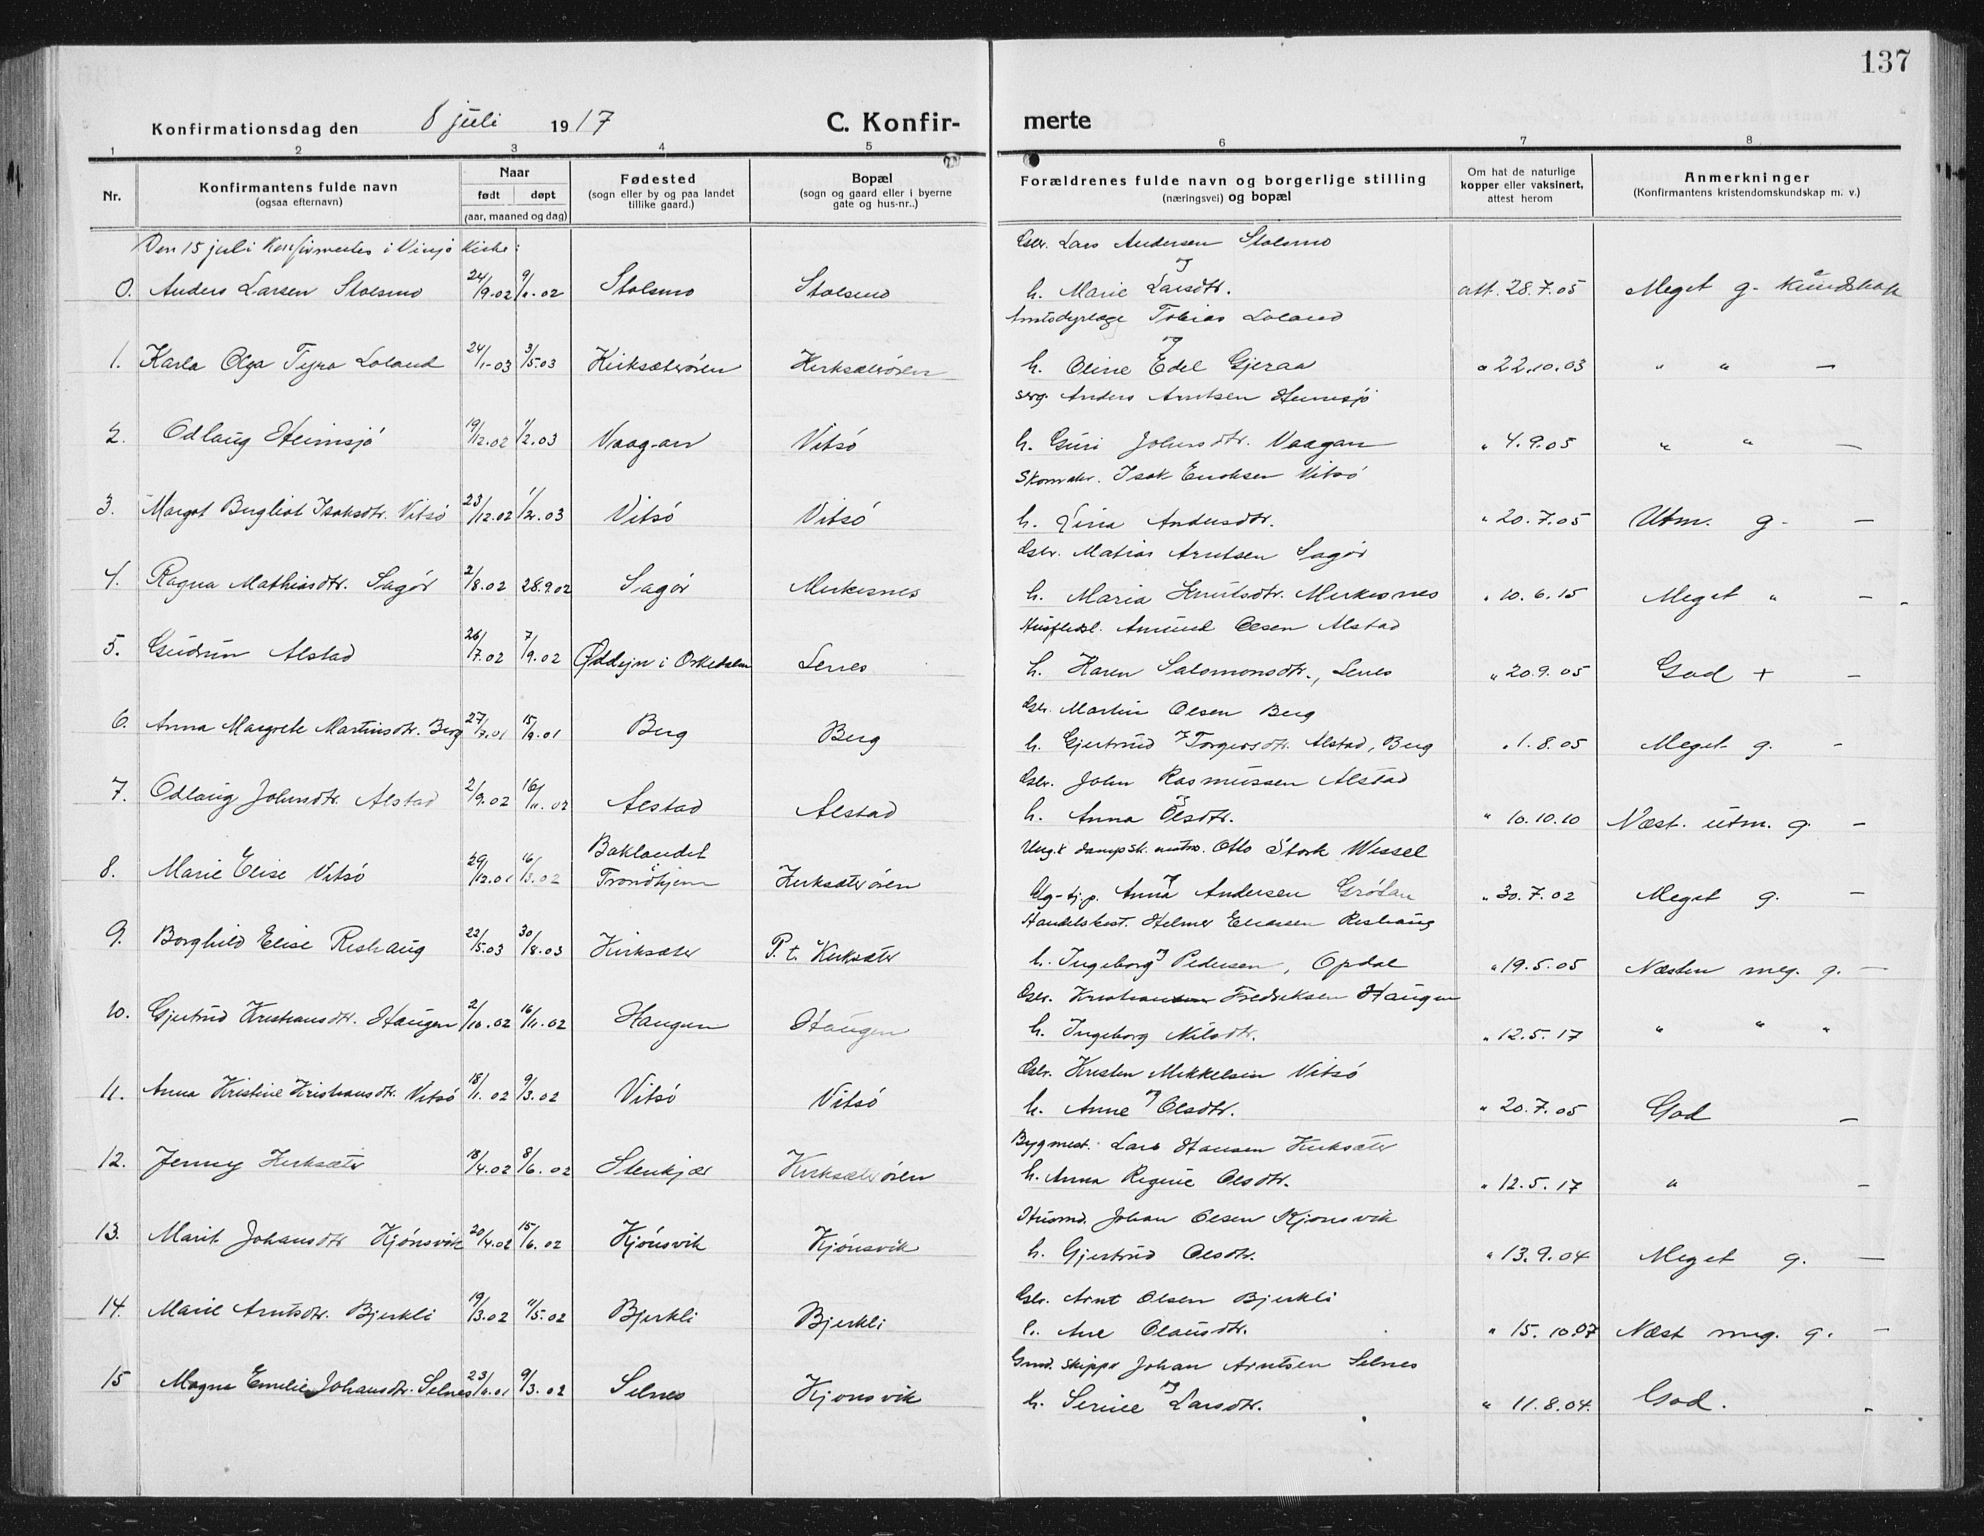 137
Konfirmationsdag den 8 juli 1917 C. Konfir- merte
1 2 3 4 5 6 7 8
Nr.
Konfirmantens fulde navn
(ogsaa efternavn)
Naar
født døpt
(aar, maaned og dag)
Fødested
(sogn eller by og paa landet
tillike gaard.)
Bopæl
(sogn og gaard eller i byerne
gate og hus-nr..)
Forældrenes fulde navn og borgerlige stilling
(næringsvei) og bopæl
Om hat de naturlige
kopper eller vaksinert,
attest herom
Anmerkninger
(Konfirmantens kristendomskundskap m. v.)
Den 15 juli konfirmertes i Vinje Kirke: Lars Andersen Stolsmo
og
0. Anders Larsen Stolsmo 24/9-02 02 Stolsmo Stolsmo h. Marie Larsdtr. att. 28.7.05 Meget g. kundskap
Tobias Loland
og
1. Karla Olga Tyra Loland 24/1-03 3/5.03 Kirksæterøren Kirksæterøren h. Oline Edel Gjeraa " 22.10.03 " " —
Anders Arntsen Heimsjø
2. Odlaug Heimsjø 19/12.02 1/2.03 Vaagan Vitsø h. Guri Johnsdtr. Vaagan " 4.9.05 " " —
Skomaker. Isak Eriksen Vitsø
3. Margot Bergliot Isaksdtr. Vitsø 23/12.02 1/2.03 Vitsø Vitsø h. Lina Andersdtr. " 20.7.05 Utm. g. —
Matias Arntsen Sagør
4. Ragna Mathiasdtr. Sagør 2/8.02 28.9.02 Sagør Merkesnes h. Maria Knutsdtr. Merkesnes " 10.6.15 Meget " —
Amund Olsen Alstad
5. Gudrun Alstad 26/7.02 7/9.02 i Orkedalen Lenes h. Karen Salomonsdtr., Lenes " 20.9.05 God + —
Martin Olsen Berg
6. Anna Margrete Martinsdtr. Berg 27/7.01 15/9.01 Berg Berg h. Gjertrud Torgersdtr. Alstad, Berg " 1.8.05 Meget g. —
John Rasmussen Alstad
og
7. Odlaug Johnsdtr. Alstad 2/9.02 16/11.02 Alstad Alstad h. Anna Olsdtr. " 10.10.10 Næst. utm. g. —
Baklandet Ung.k dampsk. Otto Stork Wessel
8. Marie Elise Vitsø 29/12.01 16/3.02 Trondhjem Kirksæterøren Anna Andersen Grøtan " 30.7.02 Meget g. —
Helmer Reshaug
9. Borghild Elise Reshaug 22/5.03 30/8.03 Kirksæter P.t. Kirksæter h. Ingeborg Pedersen, Opdal " 19.5.05 Næsten meg. g. —
Fredriksen Haugen
10. Gjertrud Kristiansdtr. Haugen 2/10.02 16/11.02 Haugen Haugen h. Ingeborg Nilsdtr. " 12.5.17 " " "
Kristen Mikkelsen Vitsø
og
11. Anna Kristine Kristiansdtr. Vitsø 18/1.02 9/3.02 Vitsø Vitsø h. Anne Olsdtr. " 20.7.05 God —
Bygmest. Lars Hansen Kirksæter
12. Jenny Kirksæter 18/4.02 8/6.02 Stenkjær Kirksæterøren h. Anna Regine Olsdtr. " 12.5.17 " —
Husmd. Johan Olsen Kjønsvik
13. Marit Johansdtr Kjønsvik 20/4.02 15/6.02 Kjønsvik Kjønsvik h. Gjertrud Olsdtr. " 13.9.04 Meget g. —
Arnt Olsen Bjerkli
14. Marie Arntsdtr. Bjerkli 19/3.02 11/5.02 Bjerkli Bjerkli h. Ane Olausdtr. " 15.10.07 Næst meg. g. —
skipper Johan Arntsen Selnes
og
15 Magna Emelie Johansdtr. Selnes 23/ 01 9/3.02 Selnes Kjønsvik h. Serine Larsdtr. " 11.8.04. God.